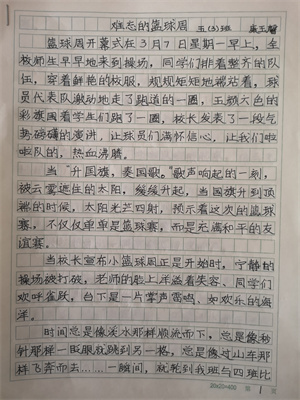 难忘的篮球周 五(3)班
篮球周开幕式在3月7日星期一早上,全
校师生早早地来到操场,同学们排着整齐的队
伍,穿着鲜艳的校服,规规矩矩地端站着,球
员代表队激动地走了跑道的一圈,五颜六色的
彩旗围着学生们跑了一圈,校长发表了一段气
势磅礴的演讲,让球员们满怀信心,让我们啦
啦队的,热血沸腾。
当“升国旗,奏国歌。”歌声响起的一刻,
被云雾遮住的太阳,缓缓升起,当国旗升到顶
端的时候,太阳光芒四射,预示着这次的篮球
赛,不仅仅单单是篮球赛,而是充满和平的友
谊赛。
当校长宣布小篮球周正是开始时,宁静的
操场被打破,老师的脸上洋溢着笑容、同学们
欢呼雀跃,台下是一片掌声雷鸣,如欢乐的海
洋。
时间总是像流水那样顺流而下,总是像秒
针那样一眨眼就跳到另一格,总是像过山车那
样飞奔而去……一瞬间,就轮到我班与四班比
20×20=400 第 1 页